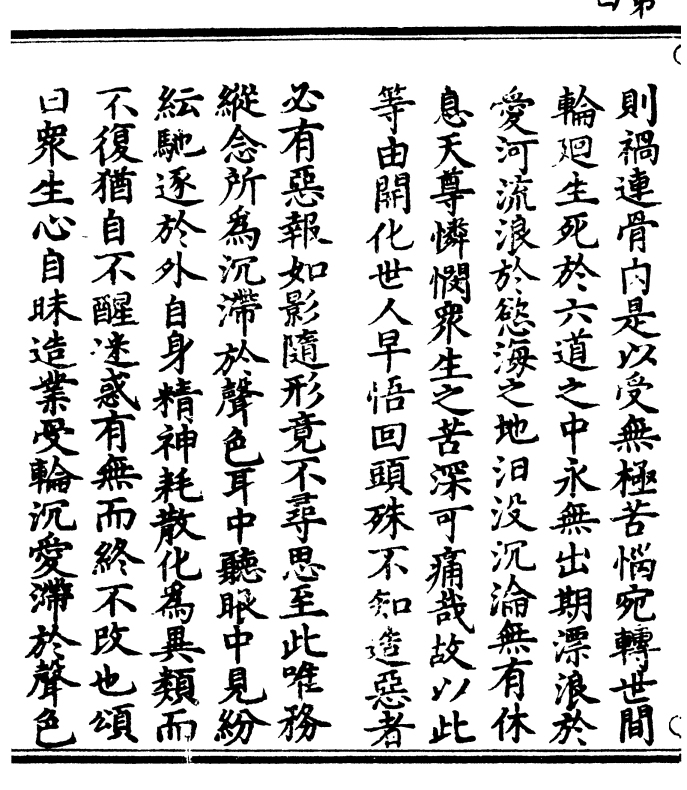 則禍連骨內是以受無極苦惱宛轉世間
輪廻生死於六道之中永無出期漂浪於
愛河流浪於慾海之地汨没沉淪無有休
息天尊憐憫衆生之苦深可痛哉故以此
等由開化世人早悟回頭殊不知造惡者
必有惡報如影隨形竟不尋思至此唯務
縱念所為沉滯於聲色耳中聽眼中見紛
紜馳逐於外自身精神耗散化為異類而
不復猶自不醒迷惑有無而終不改也頌
曰衆生心自昧造業受輪沉愛滯於聲色